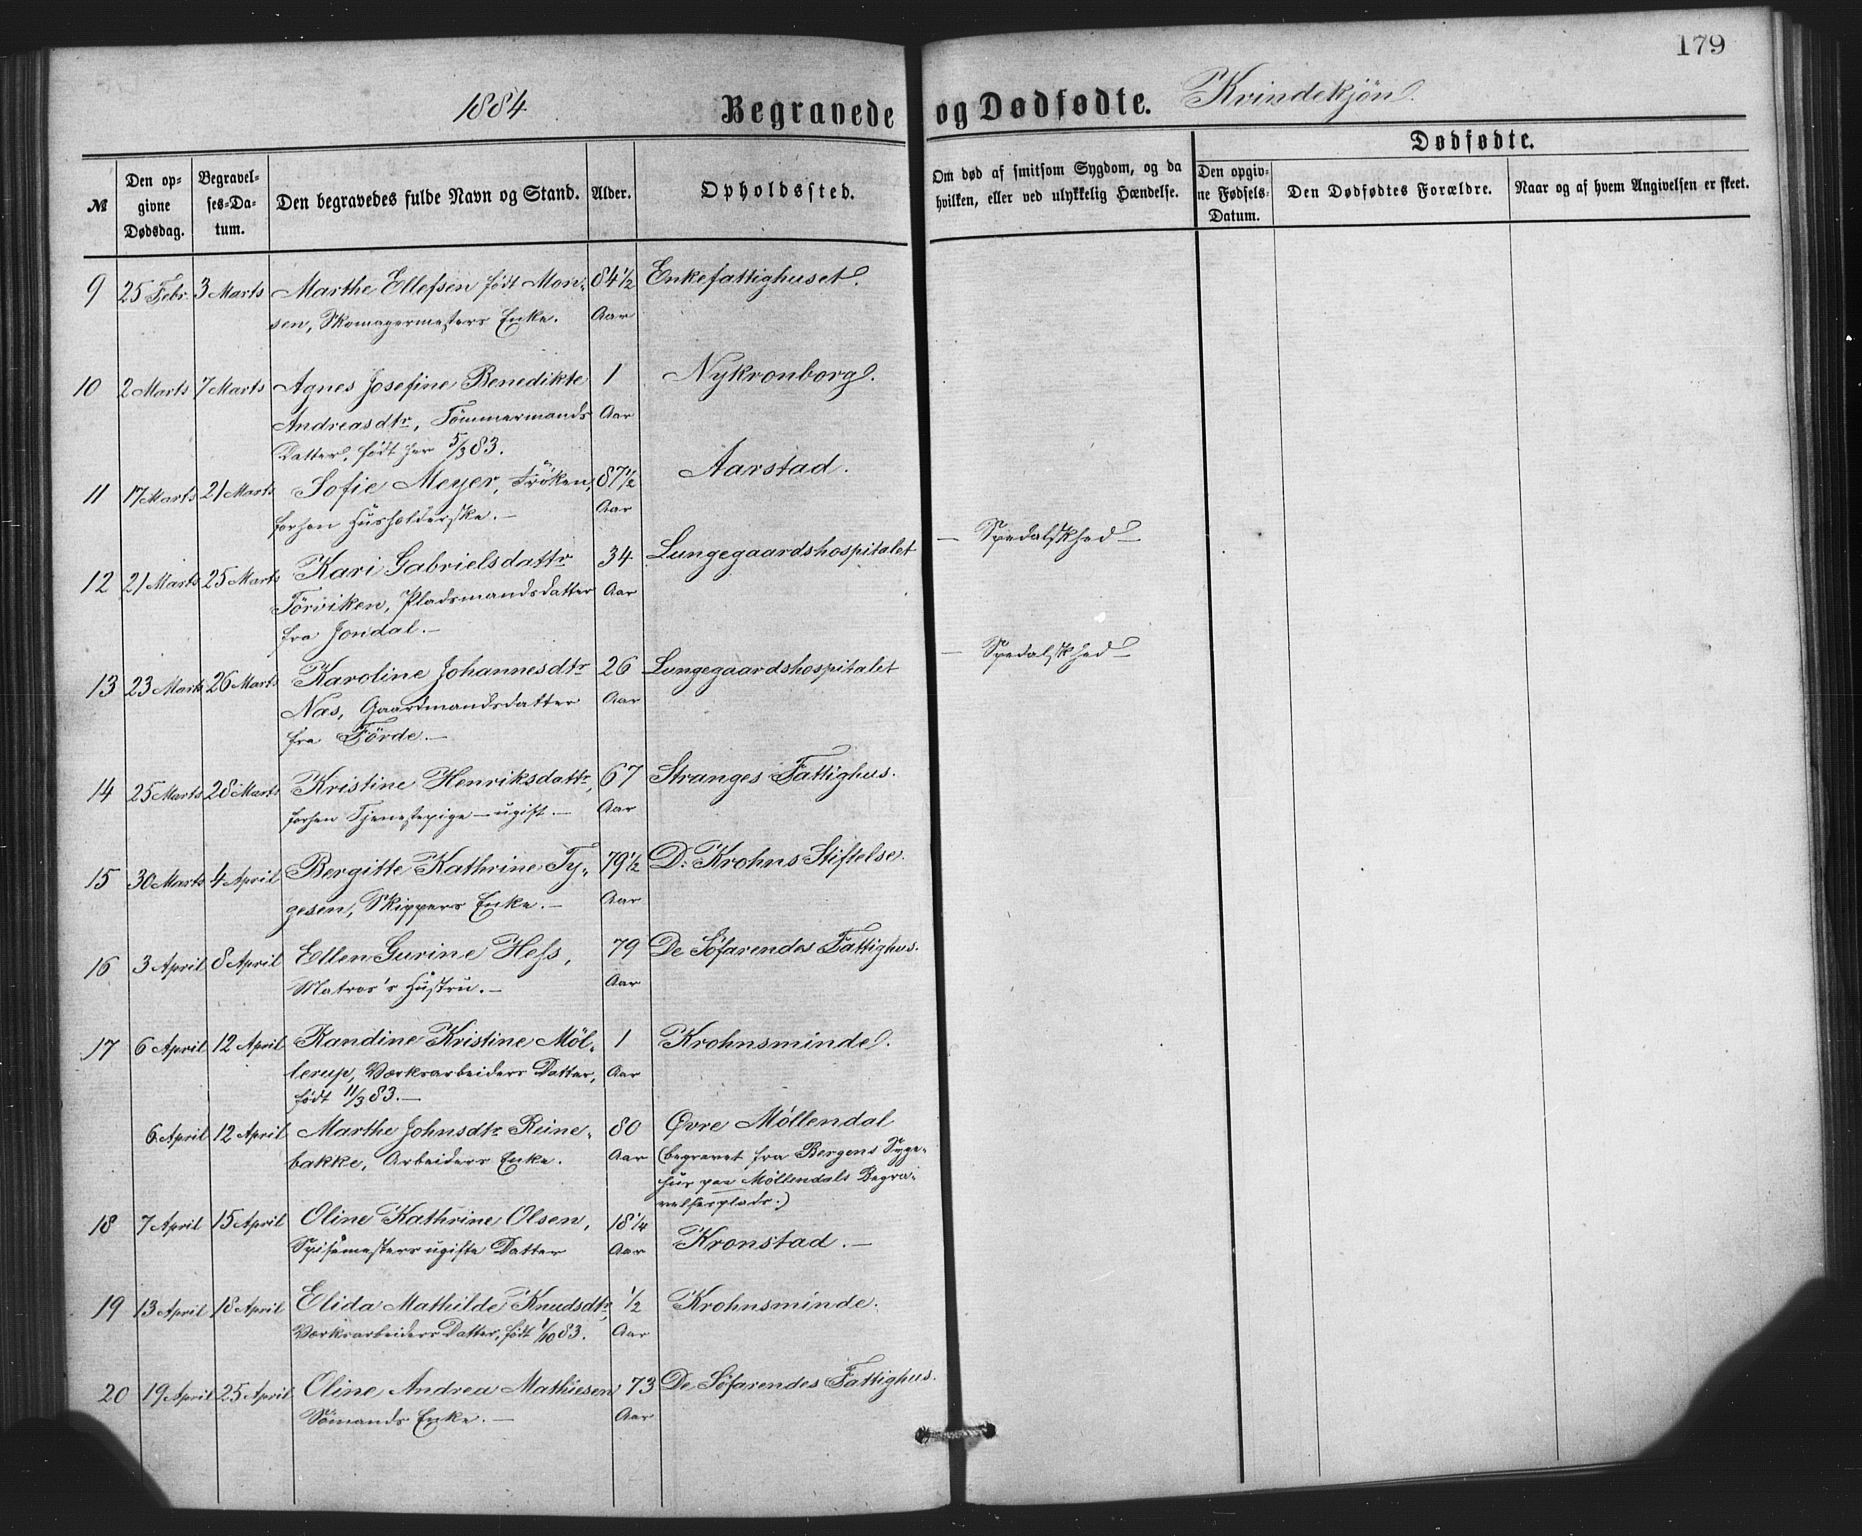 179
1884
Begravede og Dødfødte. Kvindekjön.
№
Den opgivne Dødsdag.
Begravelses-Datum.
Den begravedes fulde Navn og Stand.
Alder.
Opholdssted.
Om død af smitsom Sygdom, og da hvilken, eller ved ulykkelig Hændelse.
Dødfødte.
Den opgivne Fødsels-Datum.
Den Dødfødtes Forældre.
Naar og af hvem Angivelsen er skeet.
9 25 Febr. 3 Marts Marthe Ellefsen født Mon- 84½ Enkefattighuset.
sen, Skomagermesters Enke. Aar
10 2 Marts 7 Marts Agnes Josefine Benedikte 1 Nykronborg.
Andreasdtr, Tömmermands Aar
Datter, født her 5/3 83.
11 17 Marts 21 Marts Sofie Meyer, Fröken, 87½ Aarstad.
forhen Husholderske. — Aar
12 21 Marts 25 Marts Kari Gabrielsdattr 34 Lungegaardshospitalet — Spedalskhed —
Törviken, Pladsmandsdatter Aar
fra Jondal. —
13 23 Marts 26 Marts Karoline Johannesdtr 26 Lungegaardshospitalet — Spedalskhed —
Næs, Gaardmandsdatter Aar
fra Förde. —
14 25 Marts 28 Marts Kristine Henriksdattr, 67 Stranges Fattighus.
forhen Tjenestepige — ugift. — Aar
15 30 Marts 4 April Bergitte Kathrine Ty- 79½ D. Krohns Stiftelse.
gesen, Skippers Enke. — Aar
16 3 April 8 April Ellen Gurine Hess, 79 De Söfarendes Fattighus.
Matros's Hustru. — Aar
17 6 April 12 April Randine Kristine Möl- 1 Krohnsminde.
lerup, Værksarbeiders Datter, Aar
født 11/3 83. —
6 April 12 April Marthe Johnsdtr Reine- 80 Øvre Møllendal
bakke, Arbeiders Enke. Aar (begravet fra Bergens Syge-
hus paa Møllendals Begra-
velsesplads.)
18 7 April 15 April Oline Kathrine Olsen, 18¼ Kronstad. —
Spisemesters ugifte Datter Aar
19 13 April 18 April Elida Mathilde Knudsdtr, ½ Krohnsminde.
Værksarbeiders Datter, født 1/10 83. Aar
20 19 April 25 April Oline Andrea Mathiesen 73 De Söfarendes Fattighus.
Sömands Enke. — Aar